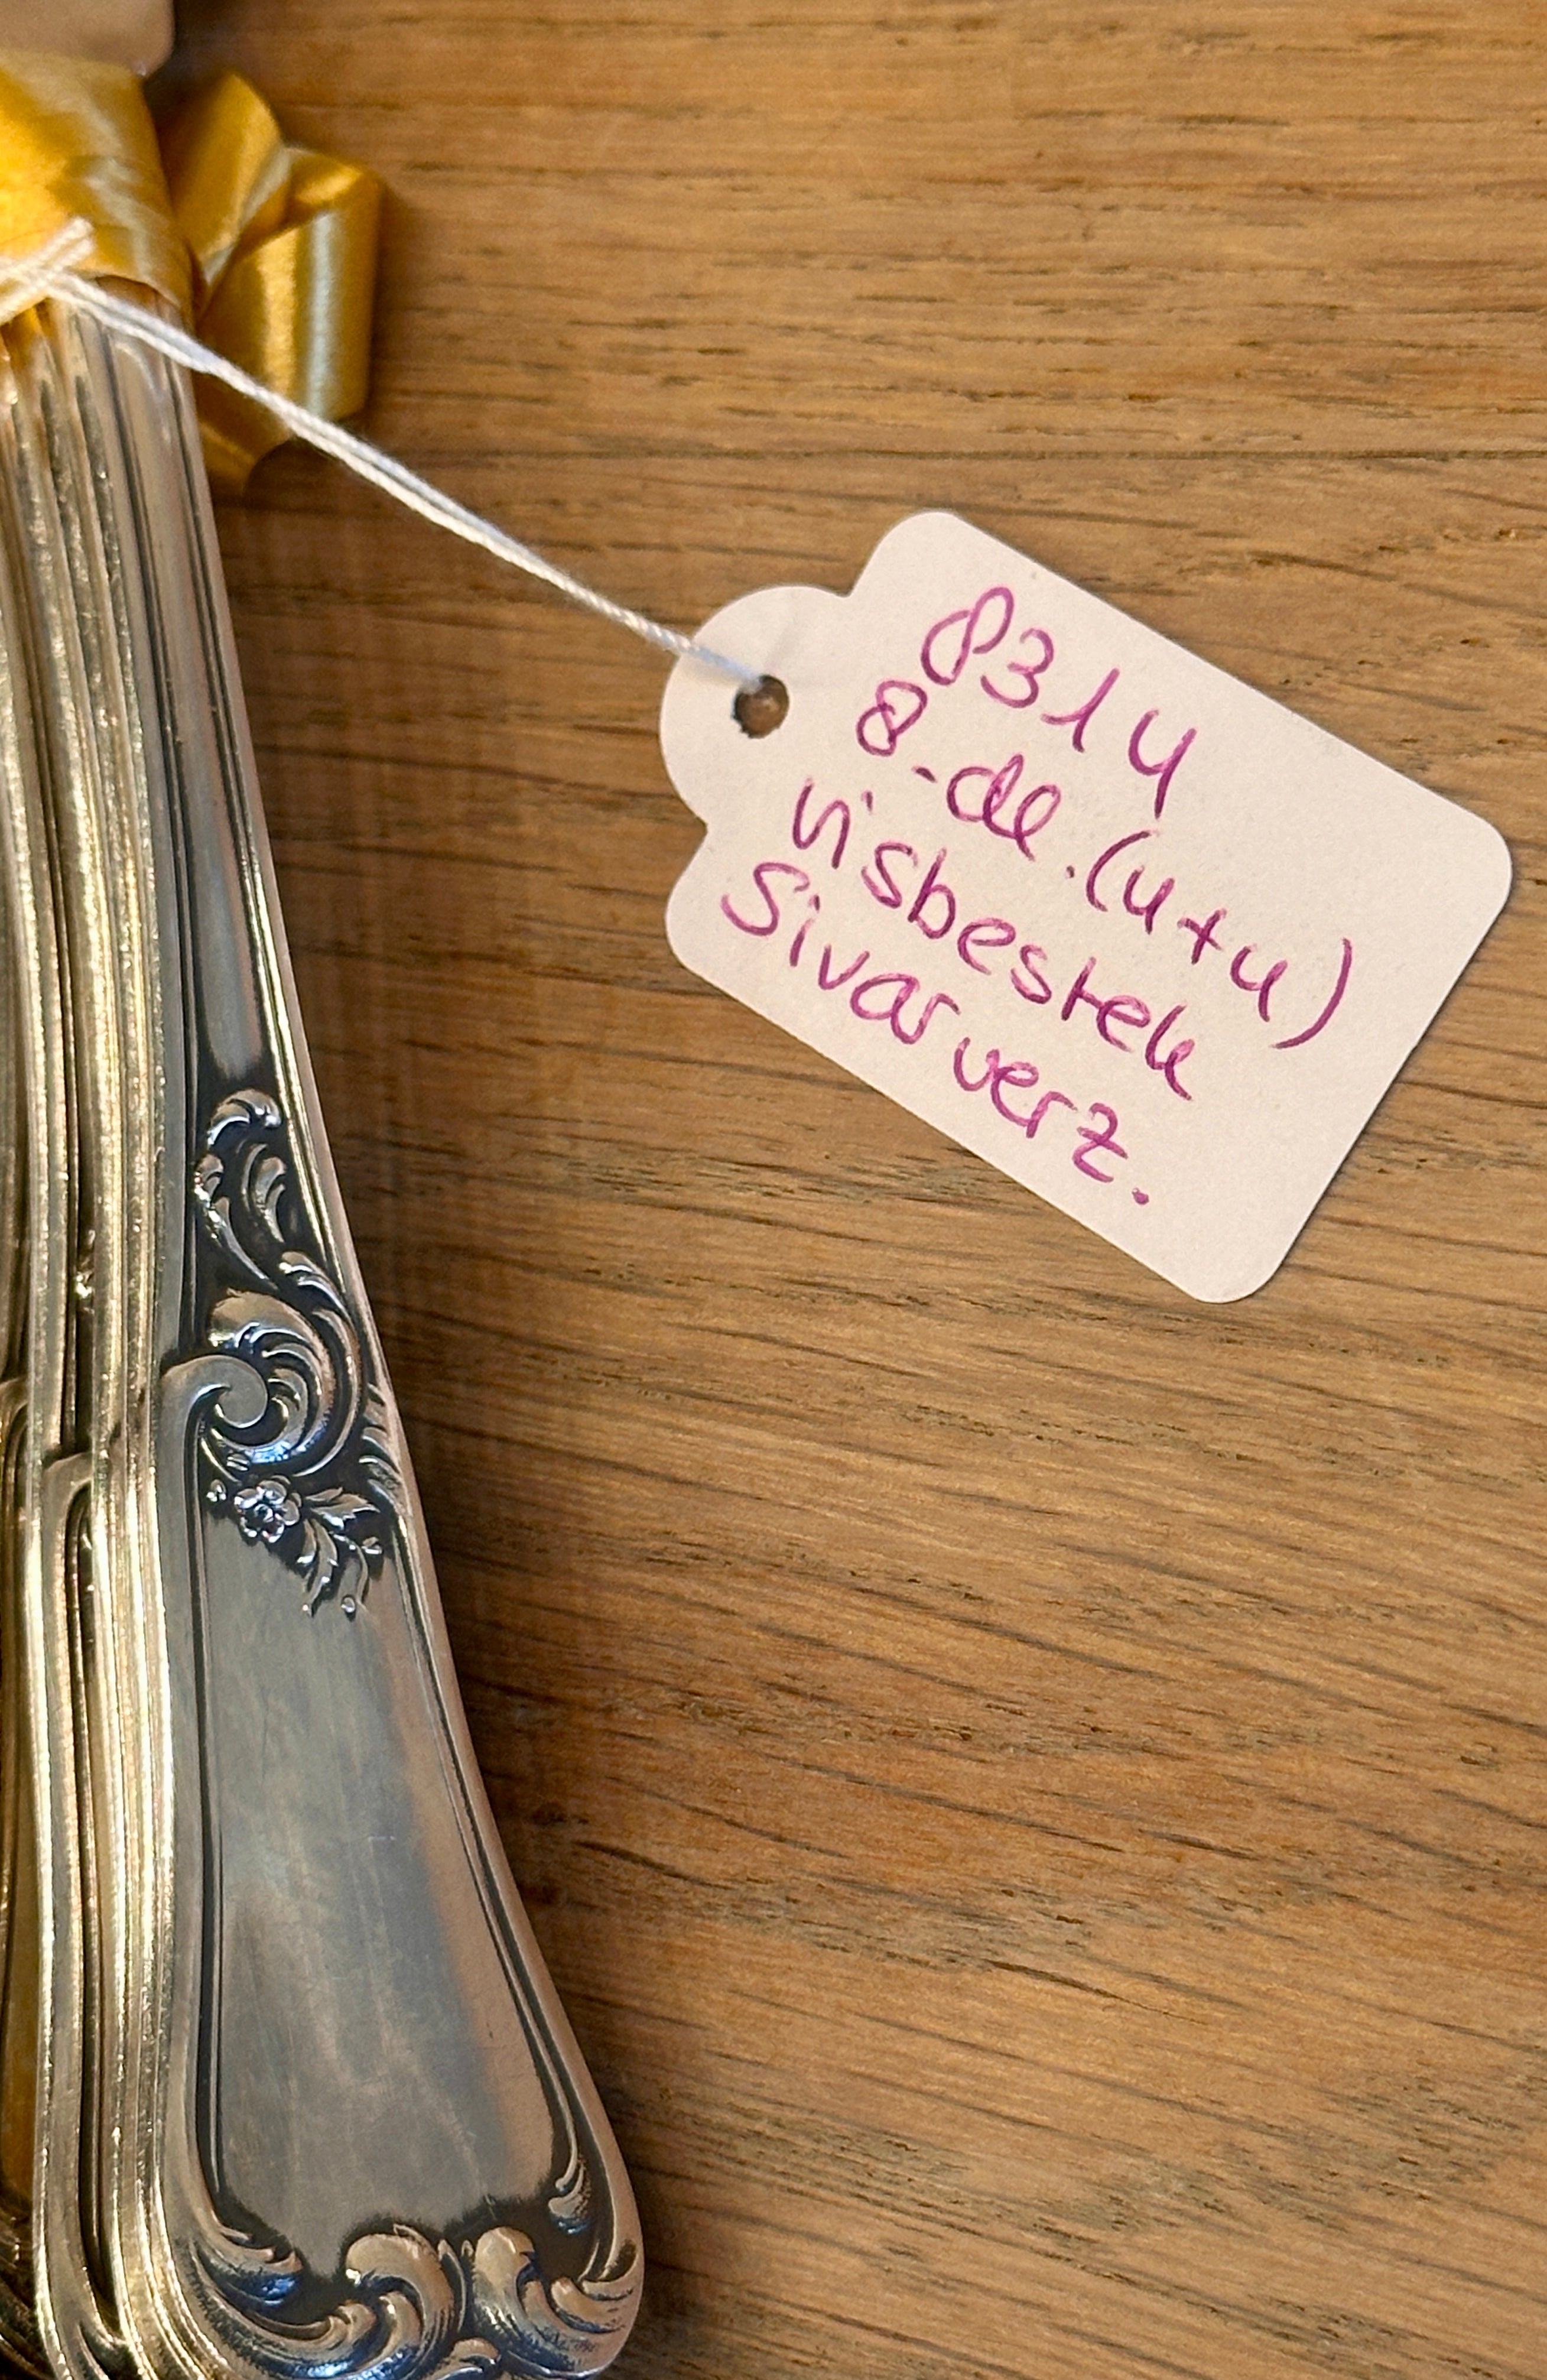 8314
8-de.(4+4)
visbestek
Sivar verz.